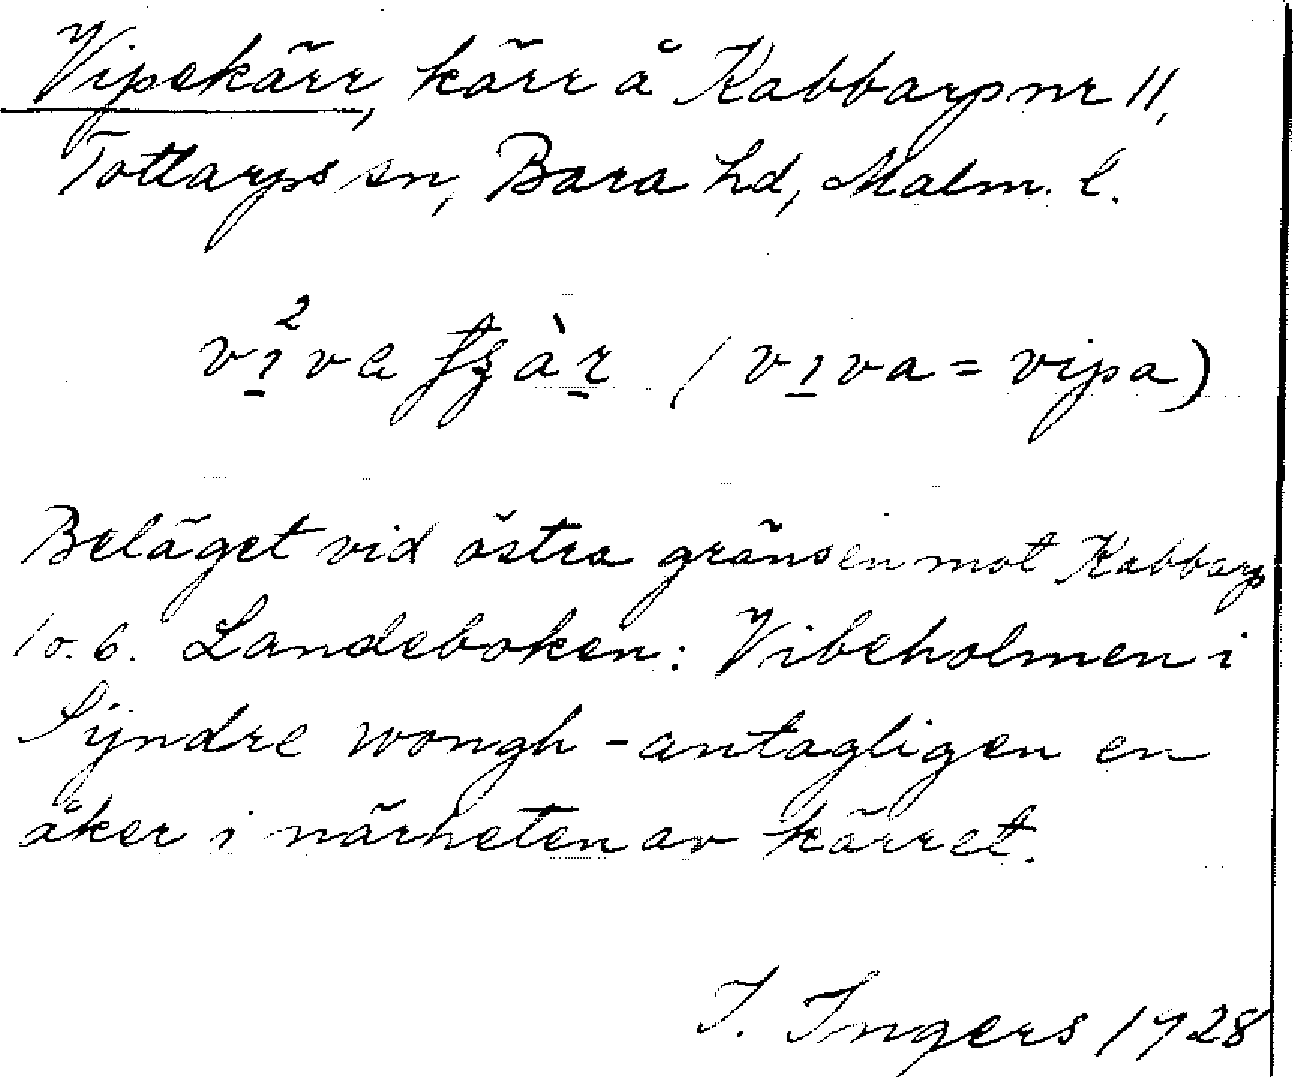 Vipekärr, kärr å Kabbarp nr 11,
Tottarps sn, Bara hd, Malm. l.
(vıva = vipa)
Beläget vid östra gränsen mot Kabbarp
10. 6. Landeboken: Vibeholmen i
Syndre wongh - antagligen en
åker i närheten av kärret.
I. Ingers 1928